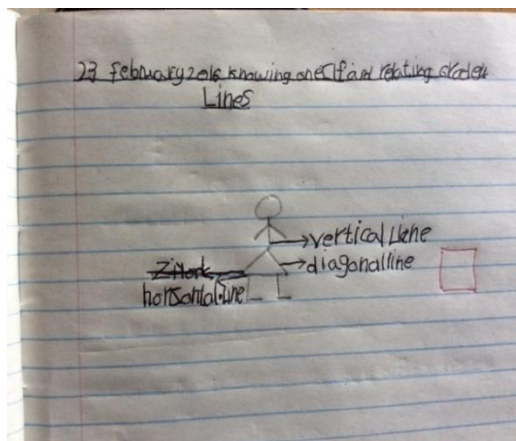 23 february 2016 knowing oneself and relating
Lines
vertical Line
diagonal line
horisontal line